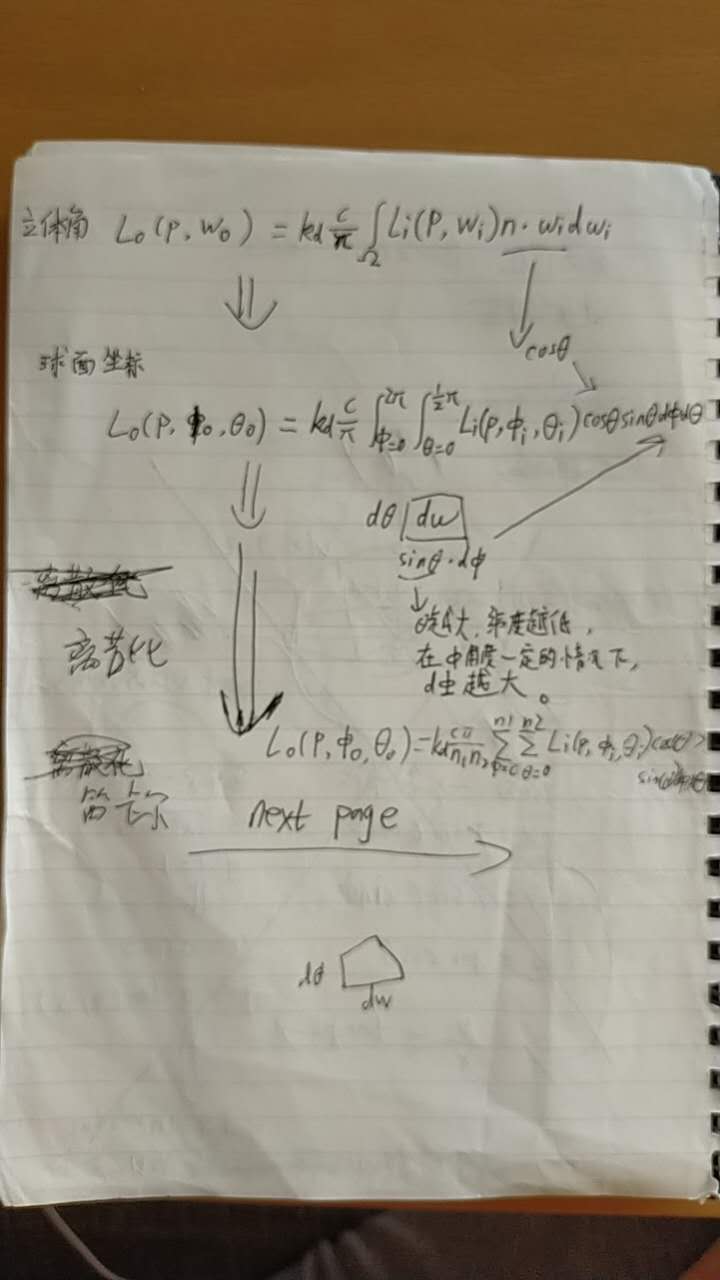 立体角 Lo(P, wo) = kd c/π ∫Ω Li(P, wi) n · wi dwi
cosθ
球面坐标
Lo(P, ϕo, θo) = kd c/π ∫ϕ=0 2π ∫θ=0 ½π Li(p, ϕi, θi) cosθ sinθ dϕ dθ
dθ dw
sinθ · dϕ
θ越大, 纬度越低,
在ϕ角度一定的情况下,
dϕ越大。
离散化
Lo(P, ϕo, θo) = kd cπ/n1 n2 ∑ n1 ∑θ=0 n2 Li(p, ϕi, θi) cosθ
next page
dθ
dw